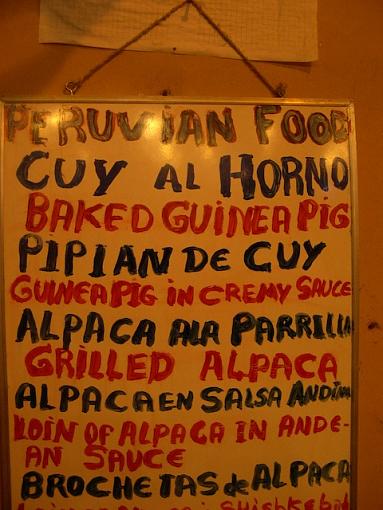 PERUVIAN FOOD
CUY AL HORNO
BAKED GUINEA PIG
PIPIAN DE CUY
GUINEA PIG IN CREMY SAUCE
ALPACA ALA PARRILLA
GRILLED ALPACA
ALPACA EN SALSA ANDINA
LOIN OF ALPACA IN ANDE-
AN SAUCE
BROCHETAS de ALPACA